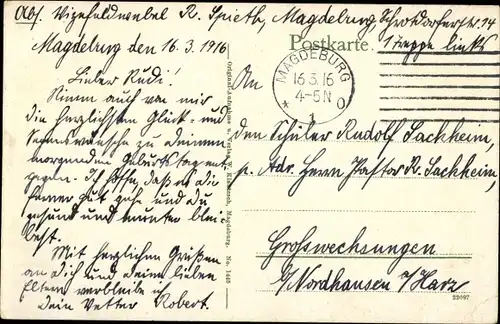 Abs. Vizefeldwebel R. Spieth, Magdeburg, Schrotdorferstr. 14
1 Treppe links
Magdeburg den 16.3.1916
Postkarte.
MAGDEBURG
16.3.16
4-5 N
* 1 o
Lieber Rudi!
Nimm auch von mir
die herzlichsten Glück- und
Segenswünsche zu Deinem
morgenden Geburtstag ent-
gegen. Ich hoffe, dass es Dir
ferner gut gehe und Du
gesund und munter blei-
best.
Mit herzlichen Grüßen
an Dich und deine lieben
Eltern verbleibe ich
Dein Vetter Robert.
An
den Schüler Rudolf Sackheim,
p. Adr. Herrn Pastor R. Sackheim,
Großwechsungen
b/Nordhausen a/Harz
Original-Aufnahme u. Verlag Magdeburg. No.
22097